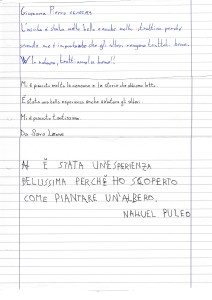 Giovanna Pierro
L'uscita è stata molto bella e anche molto divertente perché
secondo me è importante che gli alberi vengano trattati bene.
W la natura, tratti amali e boschi!!
Mi è piaciuta molto la canzone e la storia che abbiamo letto.
È stata una bella esperienza anche adottare gli alberi.
Mi è piaciuto tantissimo.
Da Sara
È STATA UN'ESPERIENZA
BELLISSIMA PERCHÉ HO SCOPERTO
COME PIANTARE UN'ALBERO.
NAHUEL PULEO